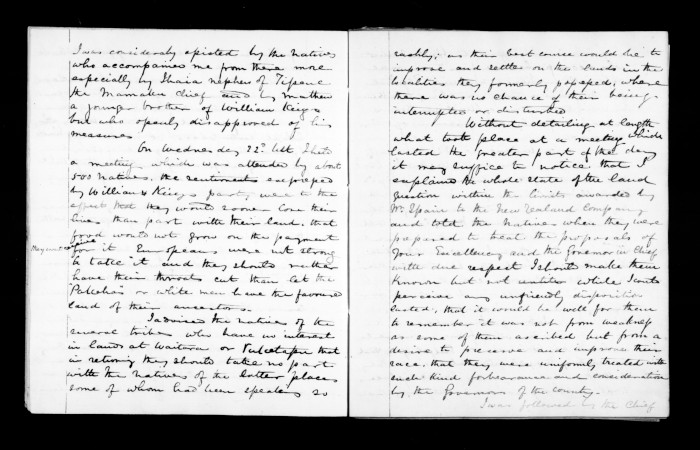 I was considerably assisted by the Natives
who accompanied me from there more
especially by Ihaia nephew of
the Mamaku Chief and by Mathew
a younger brother of William Kings
but who openly disapproved of his
measures
On Wednesday 22d Ult I held
a meeting which was attended by about
500 Natives. The sentiments expressed
by William Kings party were to the
effect that they would sooner lose their
lives than part with their land, that
food would not grow on the payment
for it Europeans were not strong
to take it and they should rather
have their throats cut than let the
Pakehas or white men have the favoured
land of their ancestors.
I advised the natives of the
several tribes who have no interest
in lands at Waitara or Puketapu that
in returning they should take no part
with the natives of the latter places
some of whom had been speaking so
rashly; as their best course would be to
improve and settle on the lands in the
localities they formerly possessed, where
there was no chance of their being
interrupted or disturbed
Without detailing at length
what took place at a meeting which
lasted the greater part of the day
it may suffice to notice that I
explained the whole state of the land
question within the limits awarded by
Mr Spain to the New Zealand Company
and told the Natives when they were
prepared to treat the proposals of
Your Excellency and the Governor in Chief
with due respect I should make them
known but not until or while I could
perceive any unfriendly disposition
lasted; that it would be well for them
to remember it was not from weakness
as some of them ascribed but from a
desire to preserve and improve their
race that they were uniformly treated with
such kind forbearance and consideration
by the Governors of the country.
I was followed by the Chief